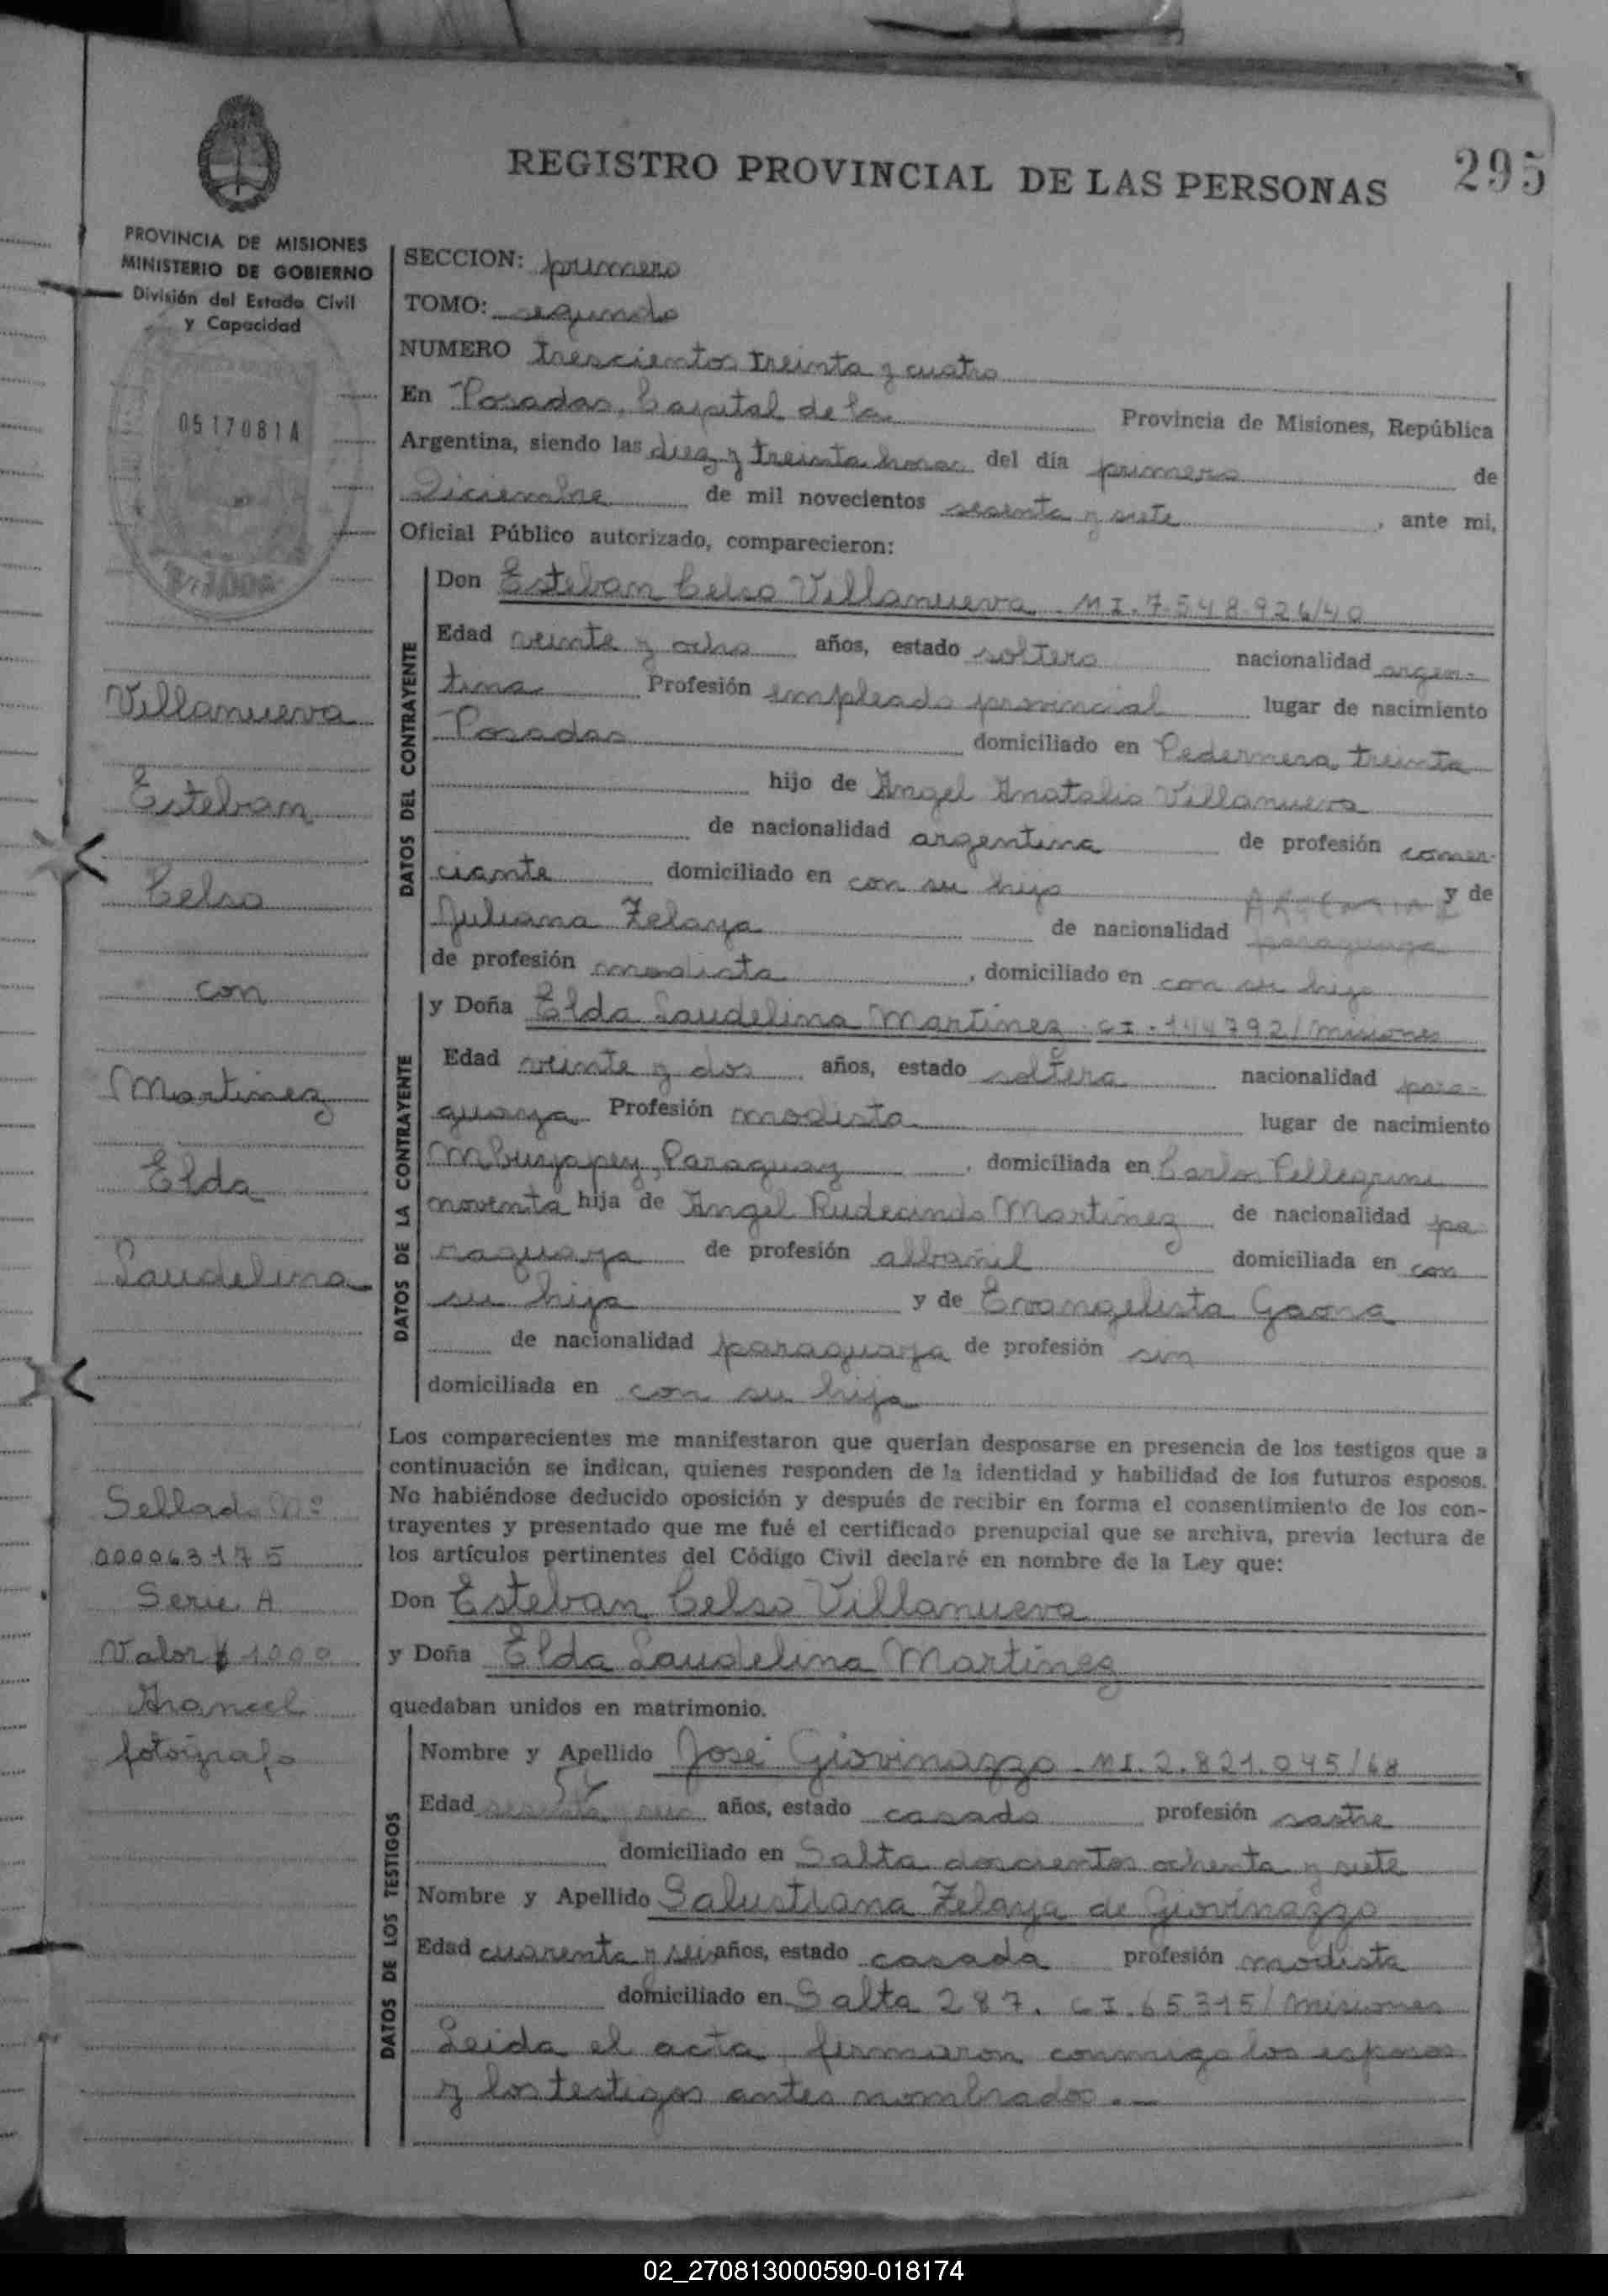 REGISTRO PROVINCIAL DE LAS PERSONAS
295
PROVINCIA DE MISIONES
MINISTERIO DE GOBIERNO
División del Estado Civil
y Capacidad
0517081A
Villanueva
Esteban
Celso
con
Martinez
Elda
Laudelina
Sellado Nº
000063175
Serie A
Valor $ 1000
Arancel
fotógrafo
SECCION: primero
TOMO: segundo
NUMERO trescientos treinta y cuatro
En Posadas, Capital de la Provincia de Misiones, República
Argentina, siendo las diez y treinta horas del día primero de
Diciembre de mil novecientos sesenta y siete, ante mi,
Oficial Público autorizado, comparecieron:
DATOS DEL CONTRAYENTE
Don Esteban Celso Villanueva - M I. 7.548.926/40
Edad veinte y ocho años, estado soltero nacionalidad argen-
tina Profesión empleado provincial lugar de nacimiento
Posadas domiciliado en Pedernera treinta
hijo de Angel Anatalio Villanueva
de nacionalidad argentina de profesión comer-
ciante domiciliado en con su hijo y de
Juliana Zelaya de nacionalidad paraguaya ARGENTINA
de profesión modista, domiciliado en con su hijo
DATOS DE LA CONTRAYENTE
y Doña Elda Laudelina Martinez - C I - 144792/Misiones
Edad veinte y dos años, estado soltera nacionalidad para-
guaya Profesión modista lugar de nacimiento
Mbuyapey, Paraguay, domiciliada en Carlos Pellegrini
noventa hija de Angel Rudecindo Martinez de nacionalidad pa
raguaya de profesión albañil domiciliada en con
su hija y de Evangelista Gaona
de nacionalidad paraguaya de profesión sin
domiciliada en con su hija
Los comparecientes me manifestaron que querían desposarse en presencia de los testigos que a
continuación se indican, quienes responden de la identidad y habilidad de los futuros esposos.
No habiéndose deducido oposición y después de recibir en forma el consentimiento de los con-
trayentes y presentado que me fué el certificado prenupcial que se archiva, previa lectura de
los artículos pertinentes del Código Civil declaré en nombre de la Ley que:
Don Esteban Celso Villanueva
y Doña Elda Laudelina Martinez
quedaban unidos en matrimonio.
DATOS DE LOS TESTIGOS
Nombre y Apellido José Giovinazzo - M I. 2.821.045/68
Edad años, estado casado profesión sastre
domiciliado en Salta doscientos ochenta y siete
Nombre y Apellido Salustiana Zelaya de Giovinazzo
Edad cuarenta y seis años, estado casada profesión modista
domiciliado en Salta 287. C I. 65.315/Misiones
Leida el acta, firmaron conmigo los esposos
y los testigos antes nombrados.-
02_270813000590-018174